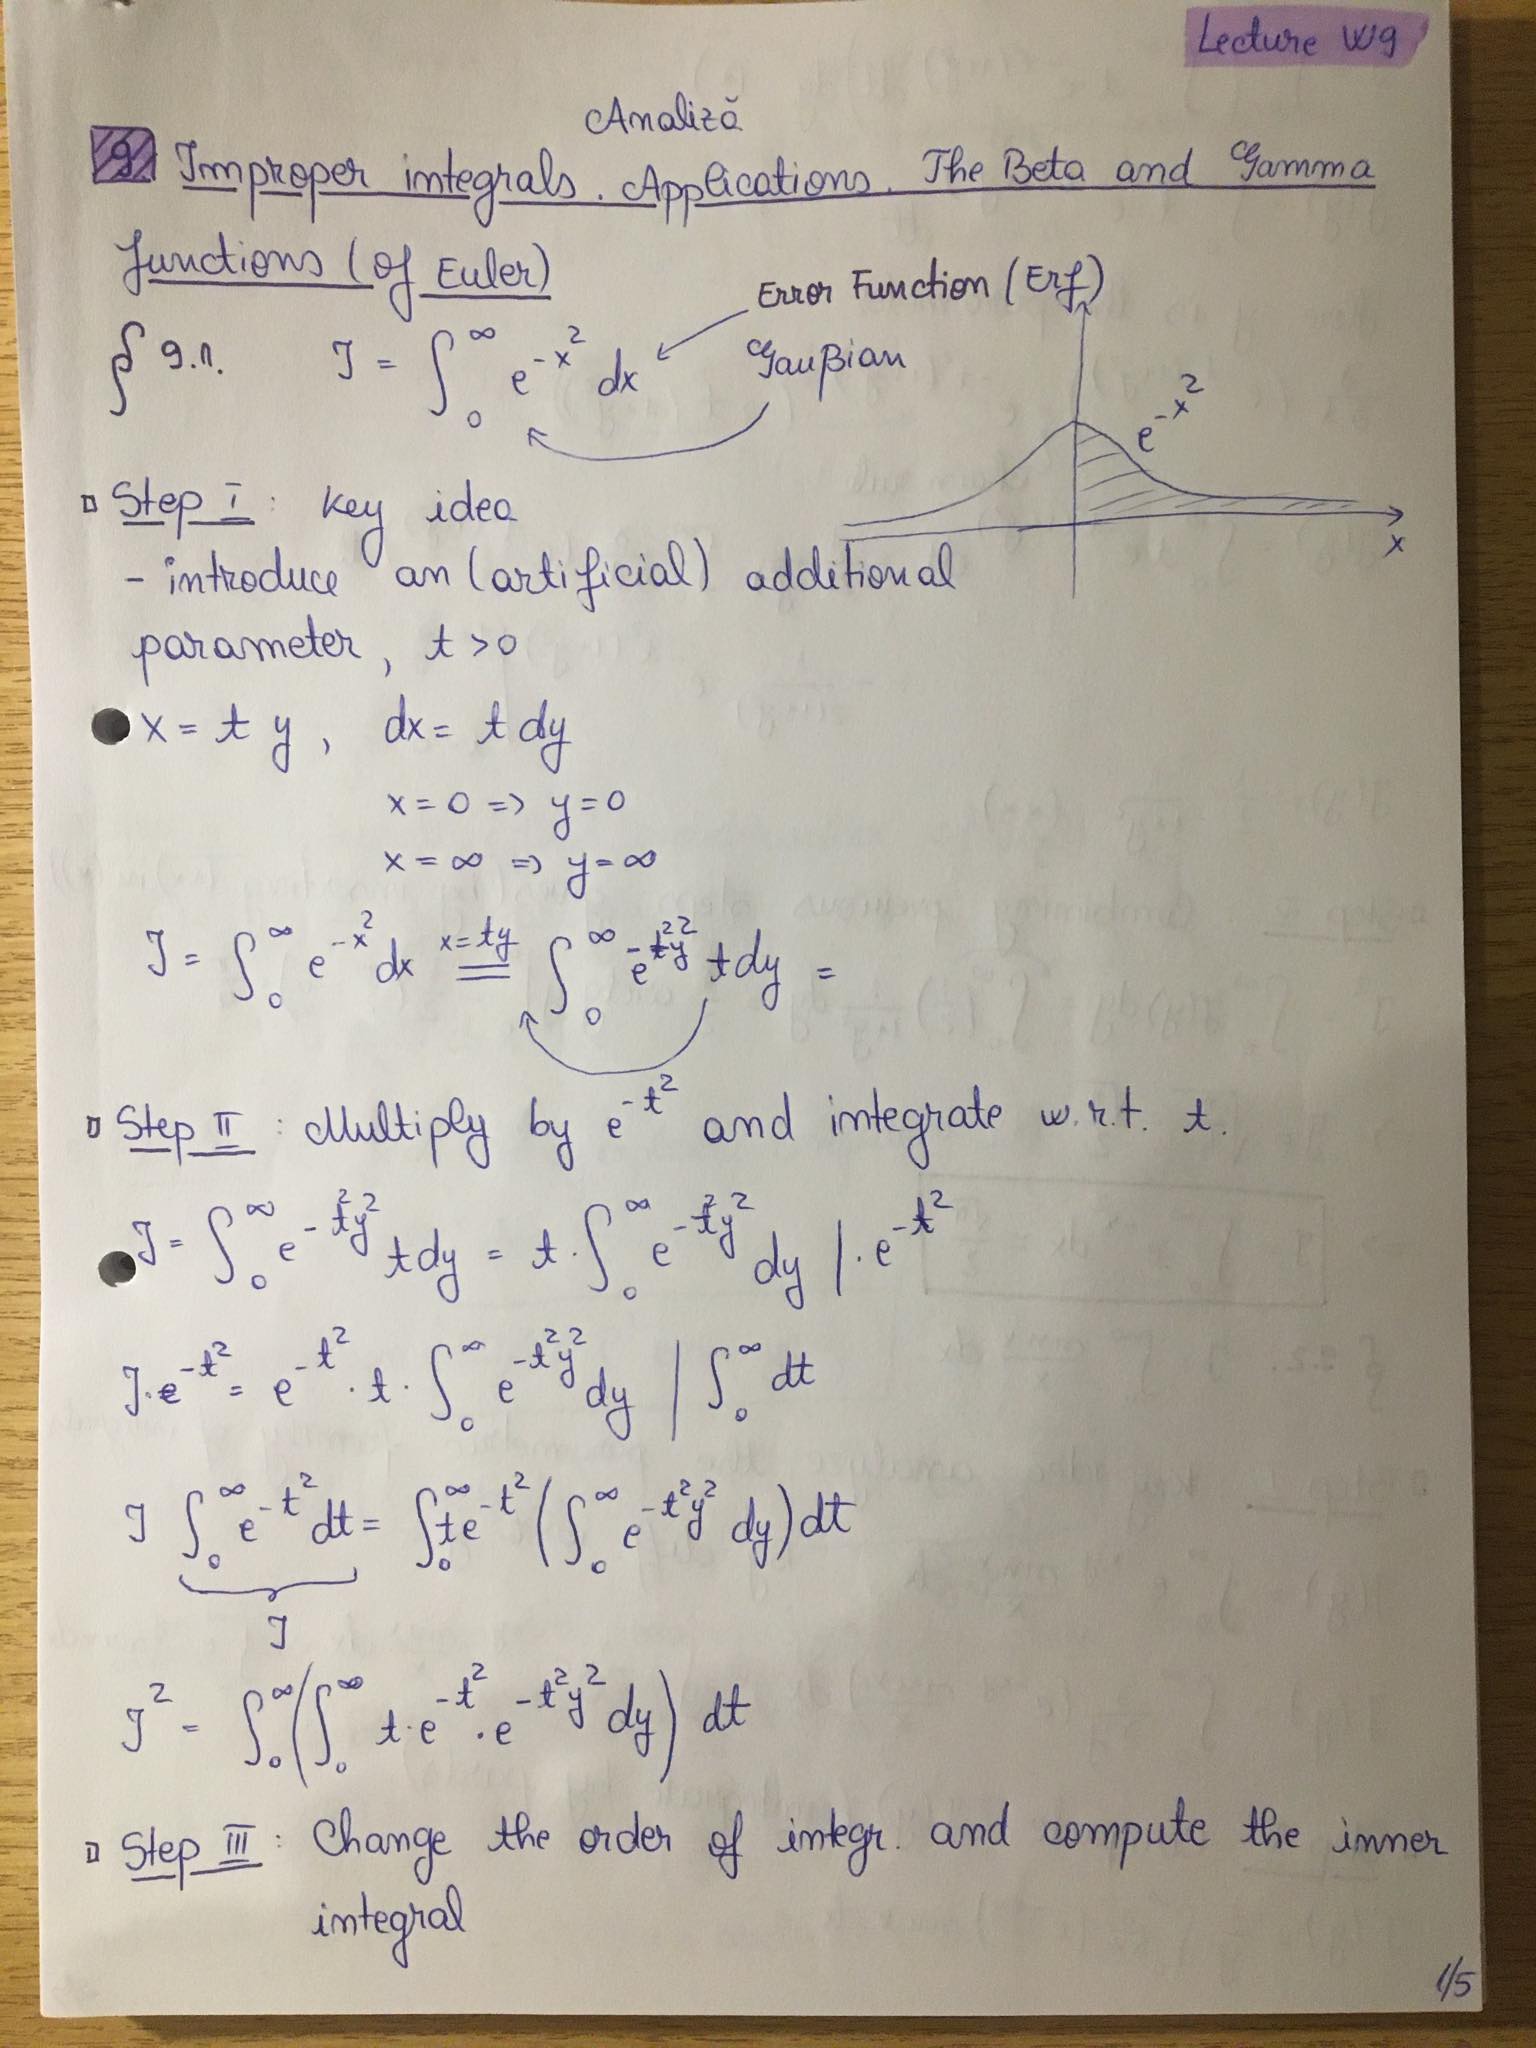 Lecture W9
Analiză
9. Improper integrals. Applications. The Beta and Gamma
functions (of Euler)
Error Function (Erf)
§ 9.1. J = ∫₀^∞ e^{-x²} dx
Gaußian
e^{-x²}
x
Step I: key idea
- introduce an (artificial) additional
parameter, t>0
x = t y, dx = t dy
x = 0 => y = 0
x = ∞ => y = ∞
J = ∫₀^∞ e^{-x²} dx =^{x=ty} ∫₀^∞ e^{-t²y²} t dy =
Step II: Multiply by e^{-t²} and integrate w.r.t. t.
J = ∫₀^∞ e^{-t²y²} t dy = t · ∫₀^∞ e^{-t²y²} dy | · e^{-t²}
J·e^{-t²} = e^{-t²} · t · ∫₀^∞ e^{-t²y²} dy | ∫₀^∞ dt
J ∫₀^∞ e^{-t²} dt = ∫₀^∞ t e^{-t²} (∫₀^∞ e^{-t²y²} dy) dt
J
J² = ∫₀^∞ (∫₀^∞ t·e^{-t²} · e^{-t²y²} dy) dt
Step III: Change the order of integr. and compute the inner
integral
1/5